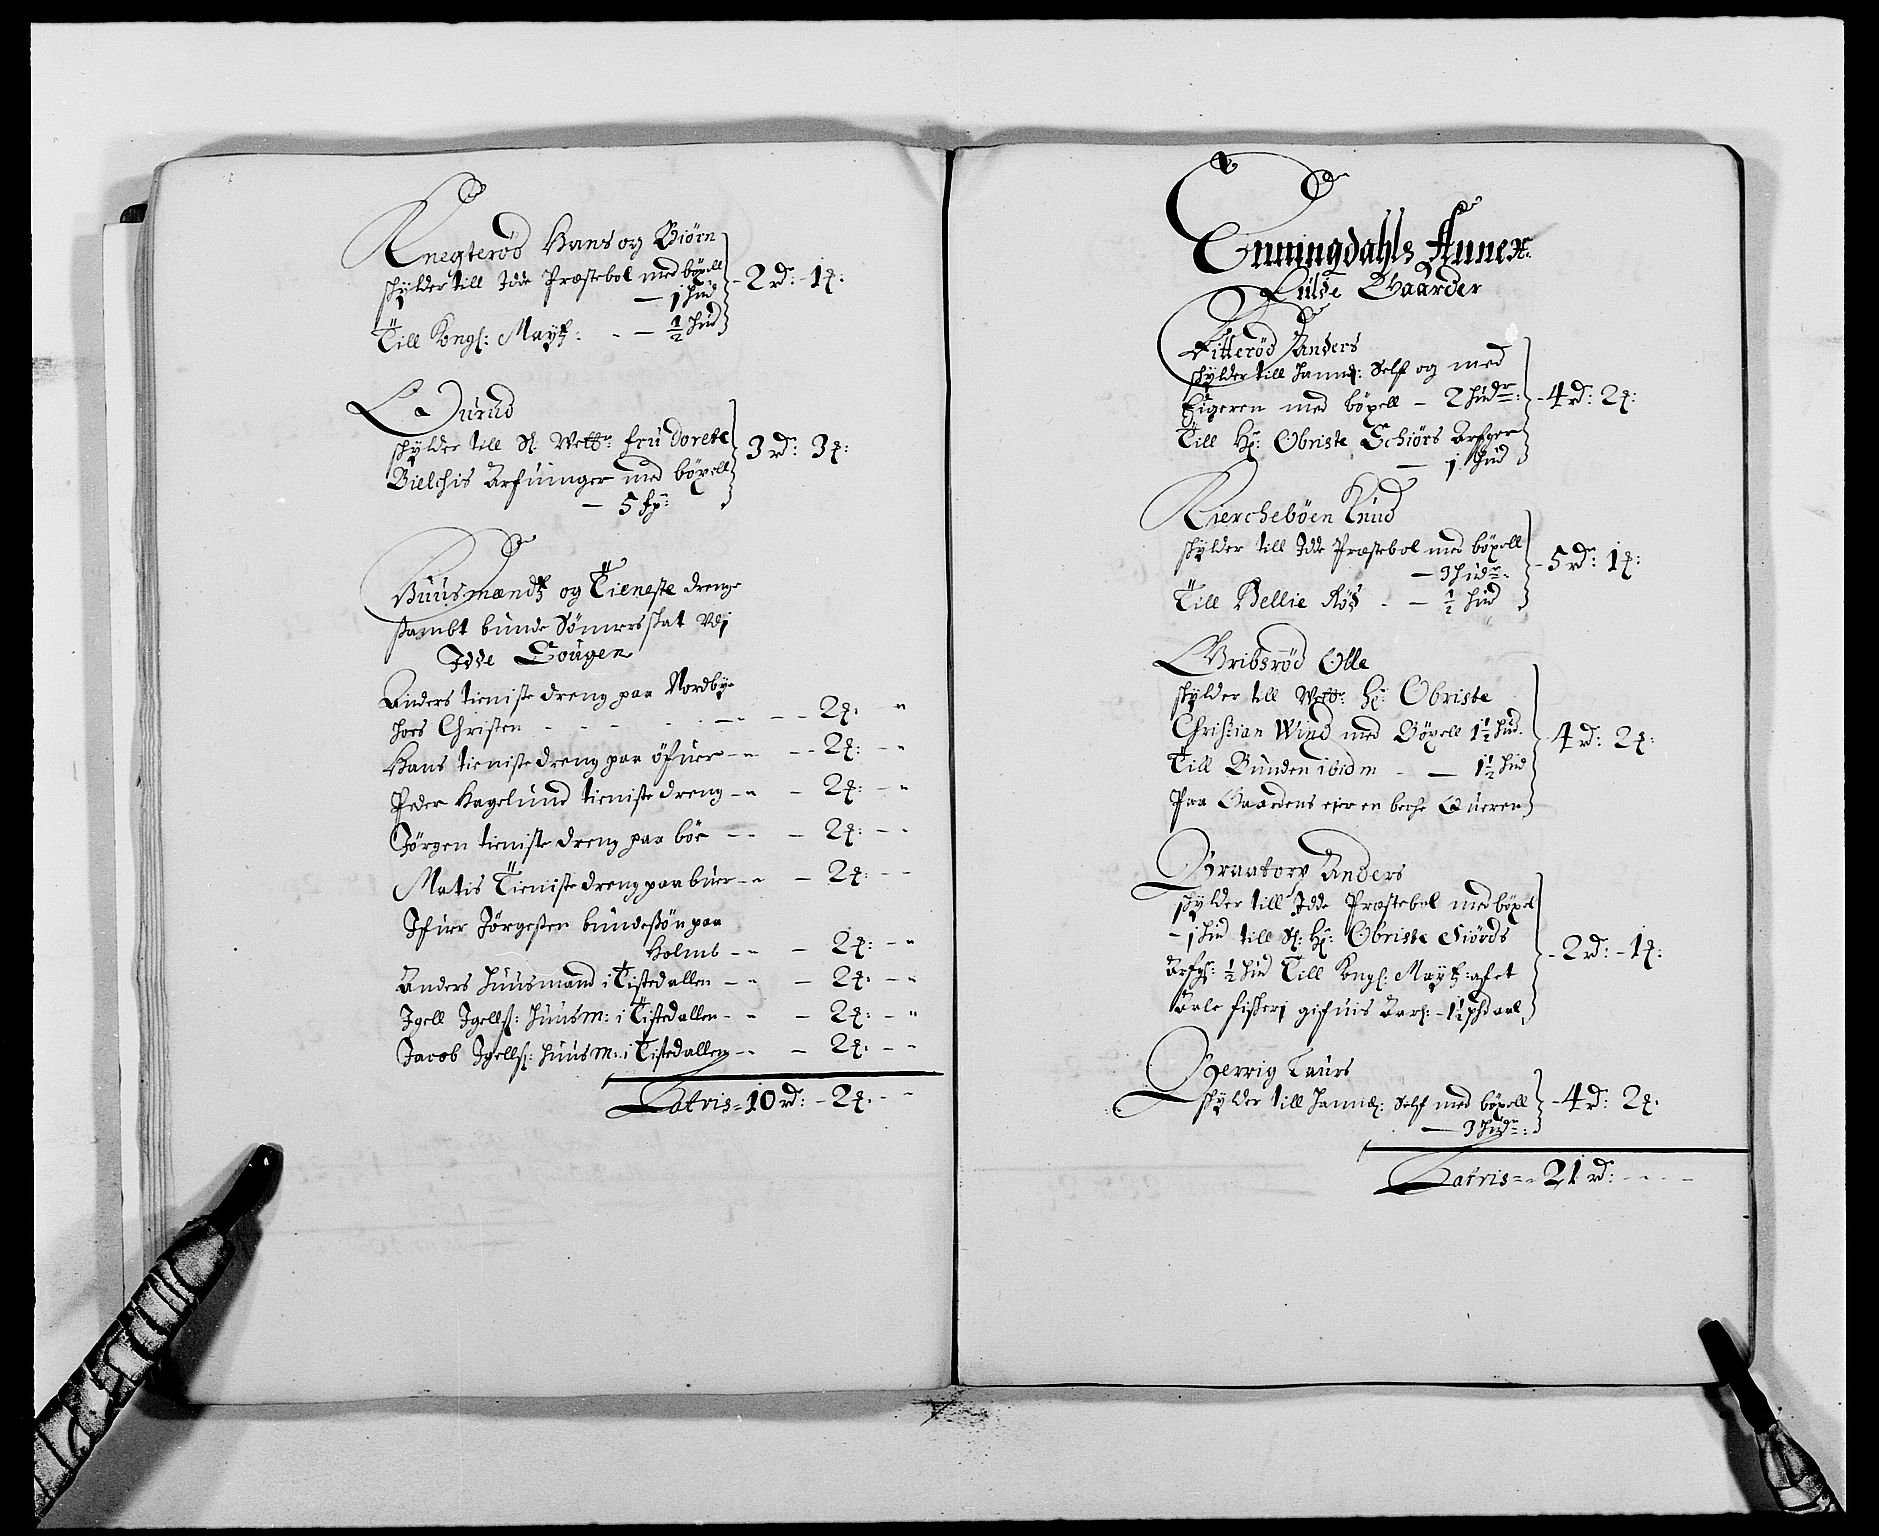 Knegterød Hans og Biørn
skylder till Idde Præstebol med böxell
— 1 hud - 2 rd: - 1 ℥:
Till Kongl: Mayt: - — ½ hud
Durud
skylder till Sl: Welb: fru Dorete
Bielchis Arfuinger med böxell 3 rd: 3 ℥:
— 5 sp:
Huusmænd og Tieneste drenge
sambt bunde Sönners skat Udj
Idde Sougen
Anders tieniste dreng paa Nordbye
hoes Christen - - - 2 ℥: - "
Hans tieniste dreng paa öfuer - - 2 ℥: - -
Peder Hagelund tieniste dreng - - 2 ℥: - "
Jörgen tieniste dreng paa böe - - 2 ℥: - -
Matis Tieniste dreng paa buer - - 2 ℥: - -
Ifuer Jörgessen bundesön paa
Holmb - - 2 ℥: - "
Anders huusmand i Tistedallen - - 2 ℥: - -
Igell Igells: huusm: i Tistedallen - - 2 ℥: - "
Jacob Igells: huusm: i Tistedallen - - 2 ℥: - -
Latris = 10 rd: - 2 ℥: - -
Enningdahls Annex:
Fulde Gaarder
Fitterød Anders
skylder till hannd: Self og med
Eigeren med böxell - 2 hudr: - 4 rd: 2 ℥:
Till Hr: Obriste Schiørs Arfger
— 1 hud
Kiercheböen Knud
skylder till Idde Præstebol med böxell
— 3 hudr: - 5 rd: 1 ℥:
Till Bellie Røß - — ½ hud
Gribsrød Olle
skylder till Welb: Hr: Obriste
Christian Wind med Böxell 1½ hud. 4 rd: 2 ℥:
Till Bunden ibidm - — 1½ hud
Paa Gaardens eier en beche Queren
Graatorp Anders
skylder till Idde Præstebol med böxel
- 1 hud till Sl: Hr: Obriste Siörds - 2 rd: - 1 ℥:
Arfg: ½ hud Till Kongl: Mayt: af et
Aale fisherj gifuis Aarl: - 1½ pd aal
Berrig Laurs
skylder till hannd: Self med böxell - 4 rd: 2 ℥:
— 3 hudr:
Latris = - 21 rd: - - -